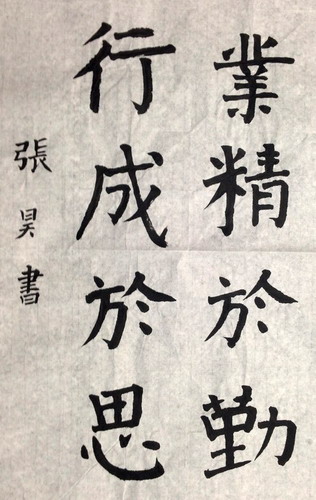 業精於勤
行成於思
張昊書